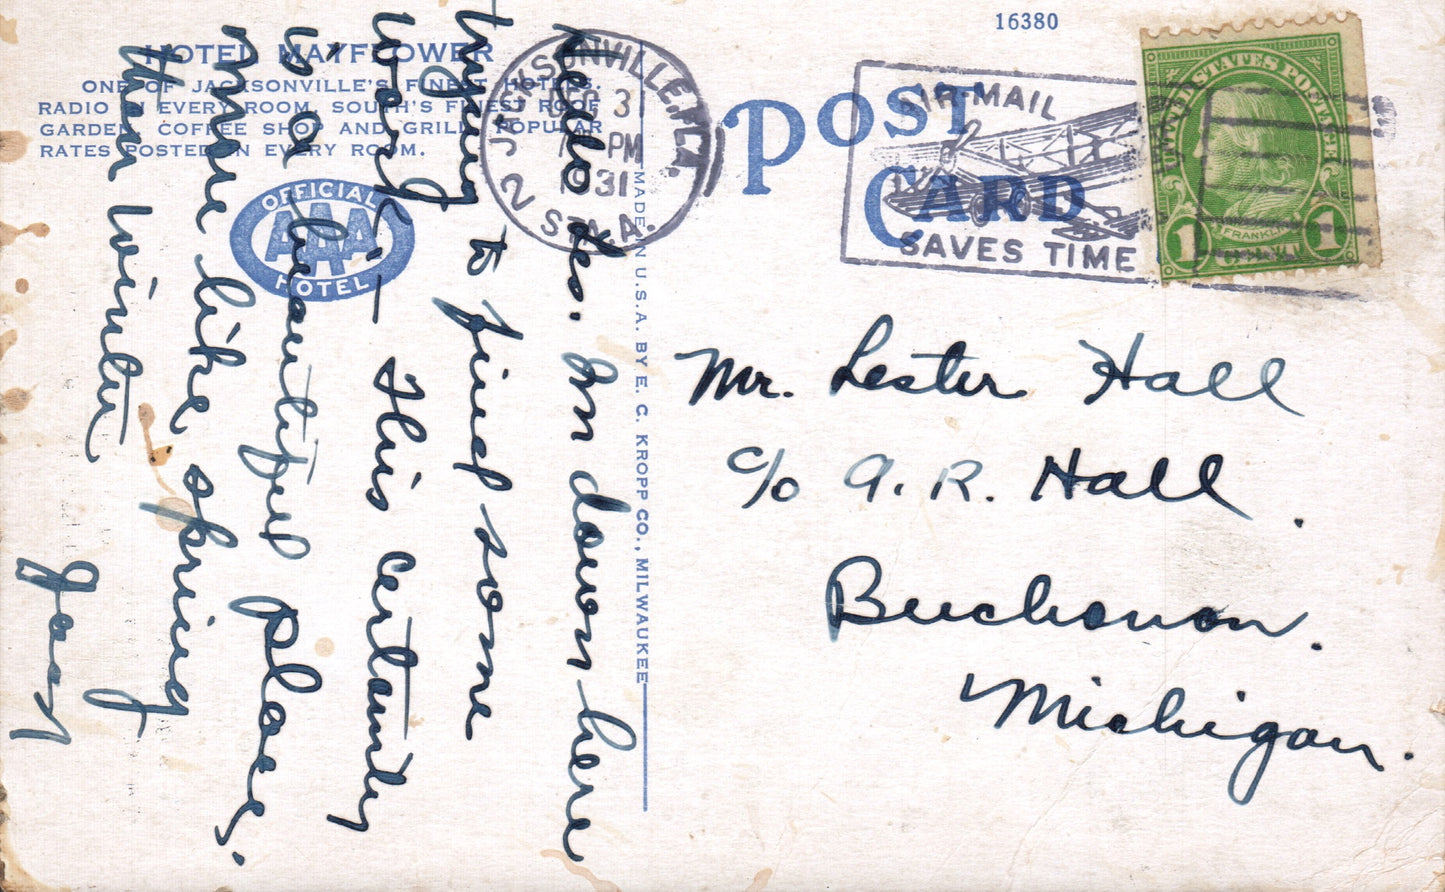 16380
HOTEL MAYFLOWER
ONE OF JACKSONVILLE'S FINEST HOTELS.
RADIO IN EVERY ROOM, SOUTH'S FINEST ROOF
GARDEN, COFFEE SHOP AND GRILL, POPULAR
RATES POSTED IN EVERY ROOM.
OFFICIAL
AAA
HOTEL
JACKSONVILLE, FLA.
3
PM
1931
2 STA.
POST
CARD
AIR MAIL
SAVES TIME
UNITED STATES POSTAGE
FRANKLIN
1 CENT 1
MADE IN U.S.A. BY E. C. KROPP CO., MILWAUKEE
Hello Les. On down here
trying to find some
work - This certainly
is a beautiful place.
more like spring
than winter
Mr. Lester Hall
c/o A. R. Hall.
Buchanan.
Michigan.